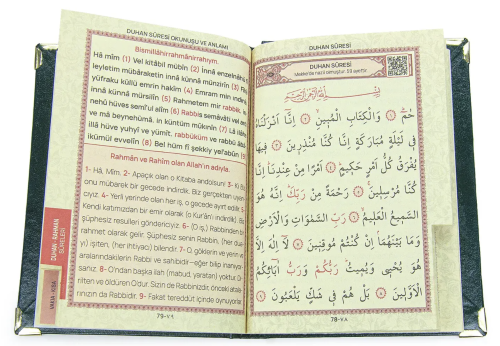 DUHAN SÛRESİ OKUNUŞU VE ANLAMI
Bismillâhirrahmânirrahiym.
Hâ mîm (1) Vel kitâbil mübîn (2) İnnâ enzelnâhü
leyletim mübâraketin innâ künnâ münzirîn (3)
yüfraku küllü emrin hakîm (4) Emram min indinâ
innâ künnâ mürsilîn (5) Rahmetem mir rabbik, in-
nehû hüves semî'ul alîm (6) Rabbis semâvâti vel
ve mâ beynehümâ, in küntüm mûkınîn (7) Lâ ilâhe
illâ hüve yuhyî ve yümît, rabbüküm ve rabbü âbâ
ikümül evvelîn (8) Bel hüm fî şekkiy yel'abûn (9)
Rahmân ve Rahîm olan Allah'ın adıyla.
1- Hâ, Mîm. 2- Apaçık olan o Kitaba andolsun! 3- Ki Biz
onu mübarek bir gecede indirdik. Biz gerçekten uyarı-
cıyız. 4- Yerli yerinde olan her iş, o gecede ayırt edilir
Kendi katımızdan bir emir olarak (o Kur'ânı indirdik). Biz
şüphesiz resulleri göndericiyiz. 6- (O iş,) Rabbinden bir
rahmet olarak gelir. Şüphesiz senin Rabbin, (her dua-
yı) işiten, (her ihtiyacı) bilendir. 7- O, göklerin ve yerin ve
aralarındakilerin Rabbi ve sahibidir -eğer bilip inanıyor-
sanız. 8- O'ndan başka ilah (mabud, yaratan) yoktur. O,
dirilten ve öldüren O'dur. Sizin de Rabbinizdir, önceki atala-
rınızın da Rabbidir. 9- Fakat tereddüt içinde oynuyorlar.
DUHAN, RAHMAN
SÛRELERİ
79-٧٩
DUHAN SÛRESİ
DUHÂN SÛRESİ
Mekke'de nazil olmuştur. 59 ayettir.
بِسْمِ اللّٰهِ الرَّحْمٰنِ الرَّحِيمِ
حٰمٓ ﴿١﴾ وَالْكِتَابِ الْمُبِينِ ﴿٢﴾ إِنَّٓا أَنْزَلْنَاهُ
فِي لَيْلَةٍ مُبَارَكَةٍ إِنَّا كُنَّا مُنْذِرِينَ ﴿٣﴾ فِيهَا
يُفْرَقُ كُلُّ أَمْرٍ حَكِيمٍ ﴿٤﴾ أَمْرًا مِنْ عِنْدِنَا إِنَّا
كُنَّا مُرْسِلِينَ ﴿٥﴾ رَحْمَةً مِنْ رَبِّكَ إِنَّهُ هُوَ
السَّمِيعُ الْعَلِيمُ ﴿٦﴾ رَبِّ السَّمٰوَاتِ وَالْأَرْضِ
وَمَا بَيْنَهُمَا إِنْ كُنْتُمْ مُوقِنِينَ ﴿٧﴾ لَٓا إِلٰهَ إِلَّا
هُوَ يُحْيِي وَيُمِيتُ رَبُّكُمْ وَرَبُّ اٰبَٓائِكُمُ
الْأَوَّلِينَ ﴿٨﴾ بَلْ هُمْ فِي شَكٍّ يَلْعَبُونَ ﴿٩﴾
78-٧٨